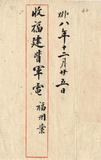 卅八年十二月廿五日
收福建省軍電 福州業